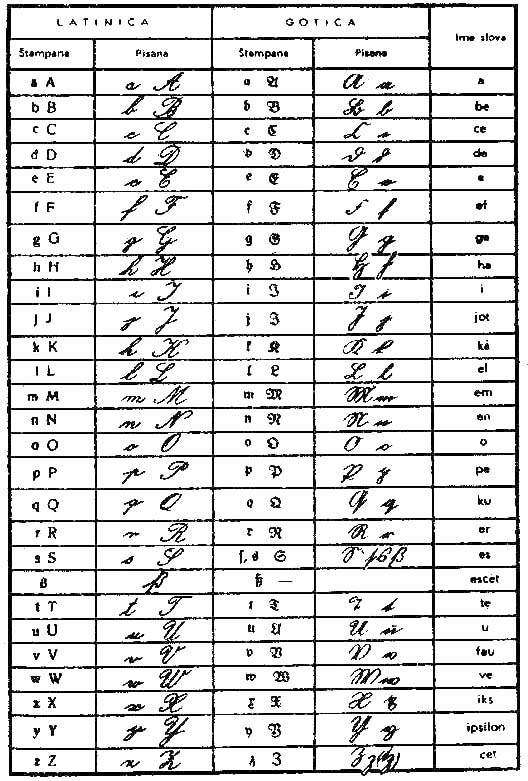 LATINICA GOTICA Ime slova
Štampane Pisana Štampane Pisana
a A a A a 𝔄 A a a
b B b B b 𝔅 B b be
c C c C c ℭ C c ce
d D d D d 𝔇 D d de
e E e E e 𝔈 E e e
f F f F f 𝔉 F f ef
g G g G g 𝔊 G g ge
h H h H h ℌ H h ha
i I i I i ℑ I i i
j J j J j 𝔍 J j jot
k K k K k 𝔎 K k ká
l L l L l 𝔏 L l el
m M m M m 𝔐 M m em
n N n N n 𝔑 N n en
o O o O o 𝔒 O o o
p P p P p 𝔓 P p pe
q Q q Q q 𝔔 Q q ku
r R r R r ℜ R r er
s S s S ſ, s 𝔖 S ſ s ß es
ß ß ß — escet
t T t T t 𝔗 T t te
u U u U u 𝔘 U u u
v V v V v 𝔙 V v fau
w W w W w 𝔚 W w ve
x X x X x 𝔛 X x iks
y Y y Y y 𝔜 Y y ipsilon
z Z z Z z ℨ Z z (z) cet